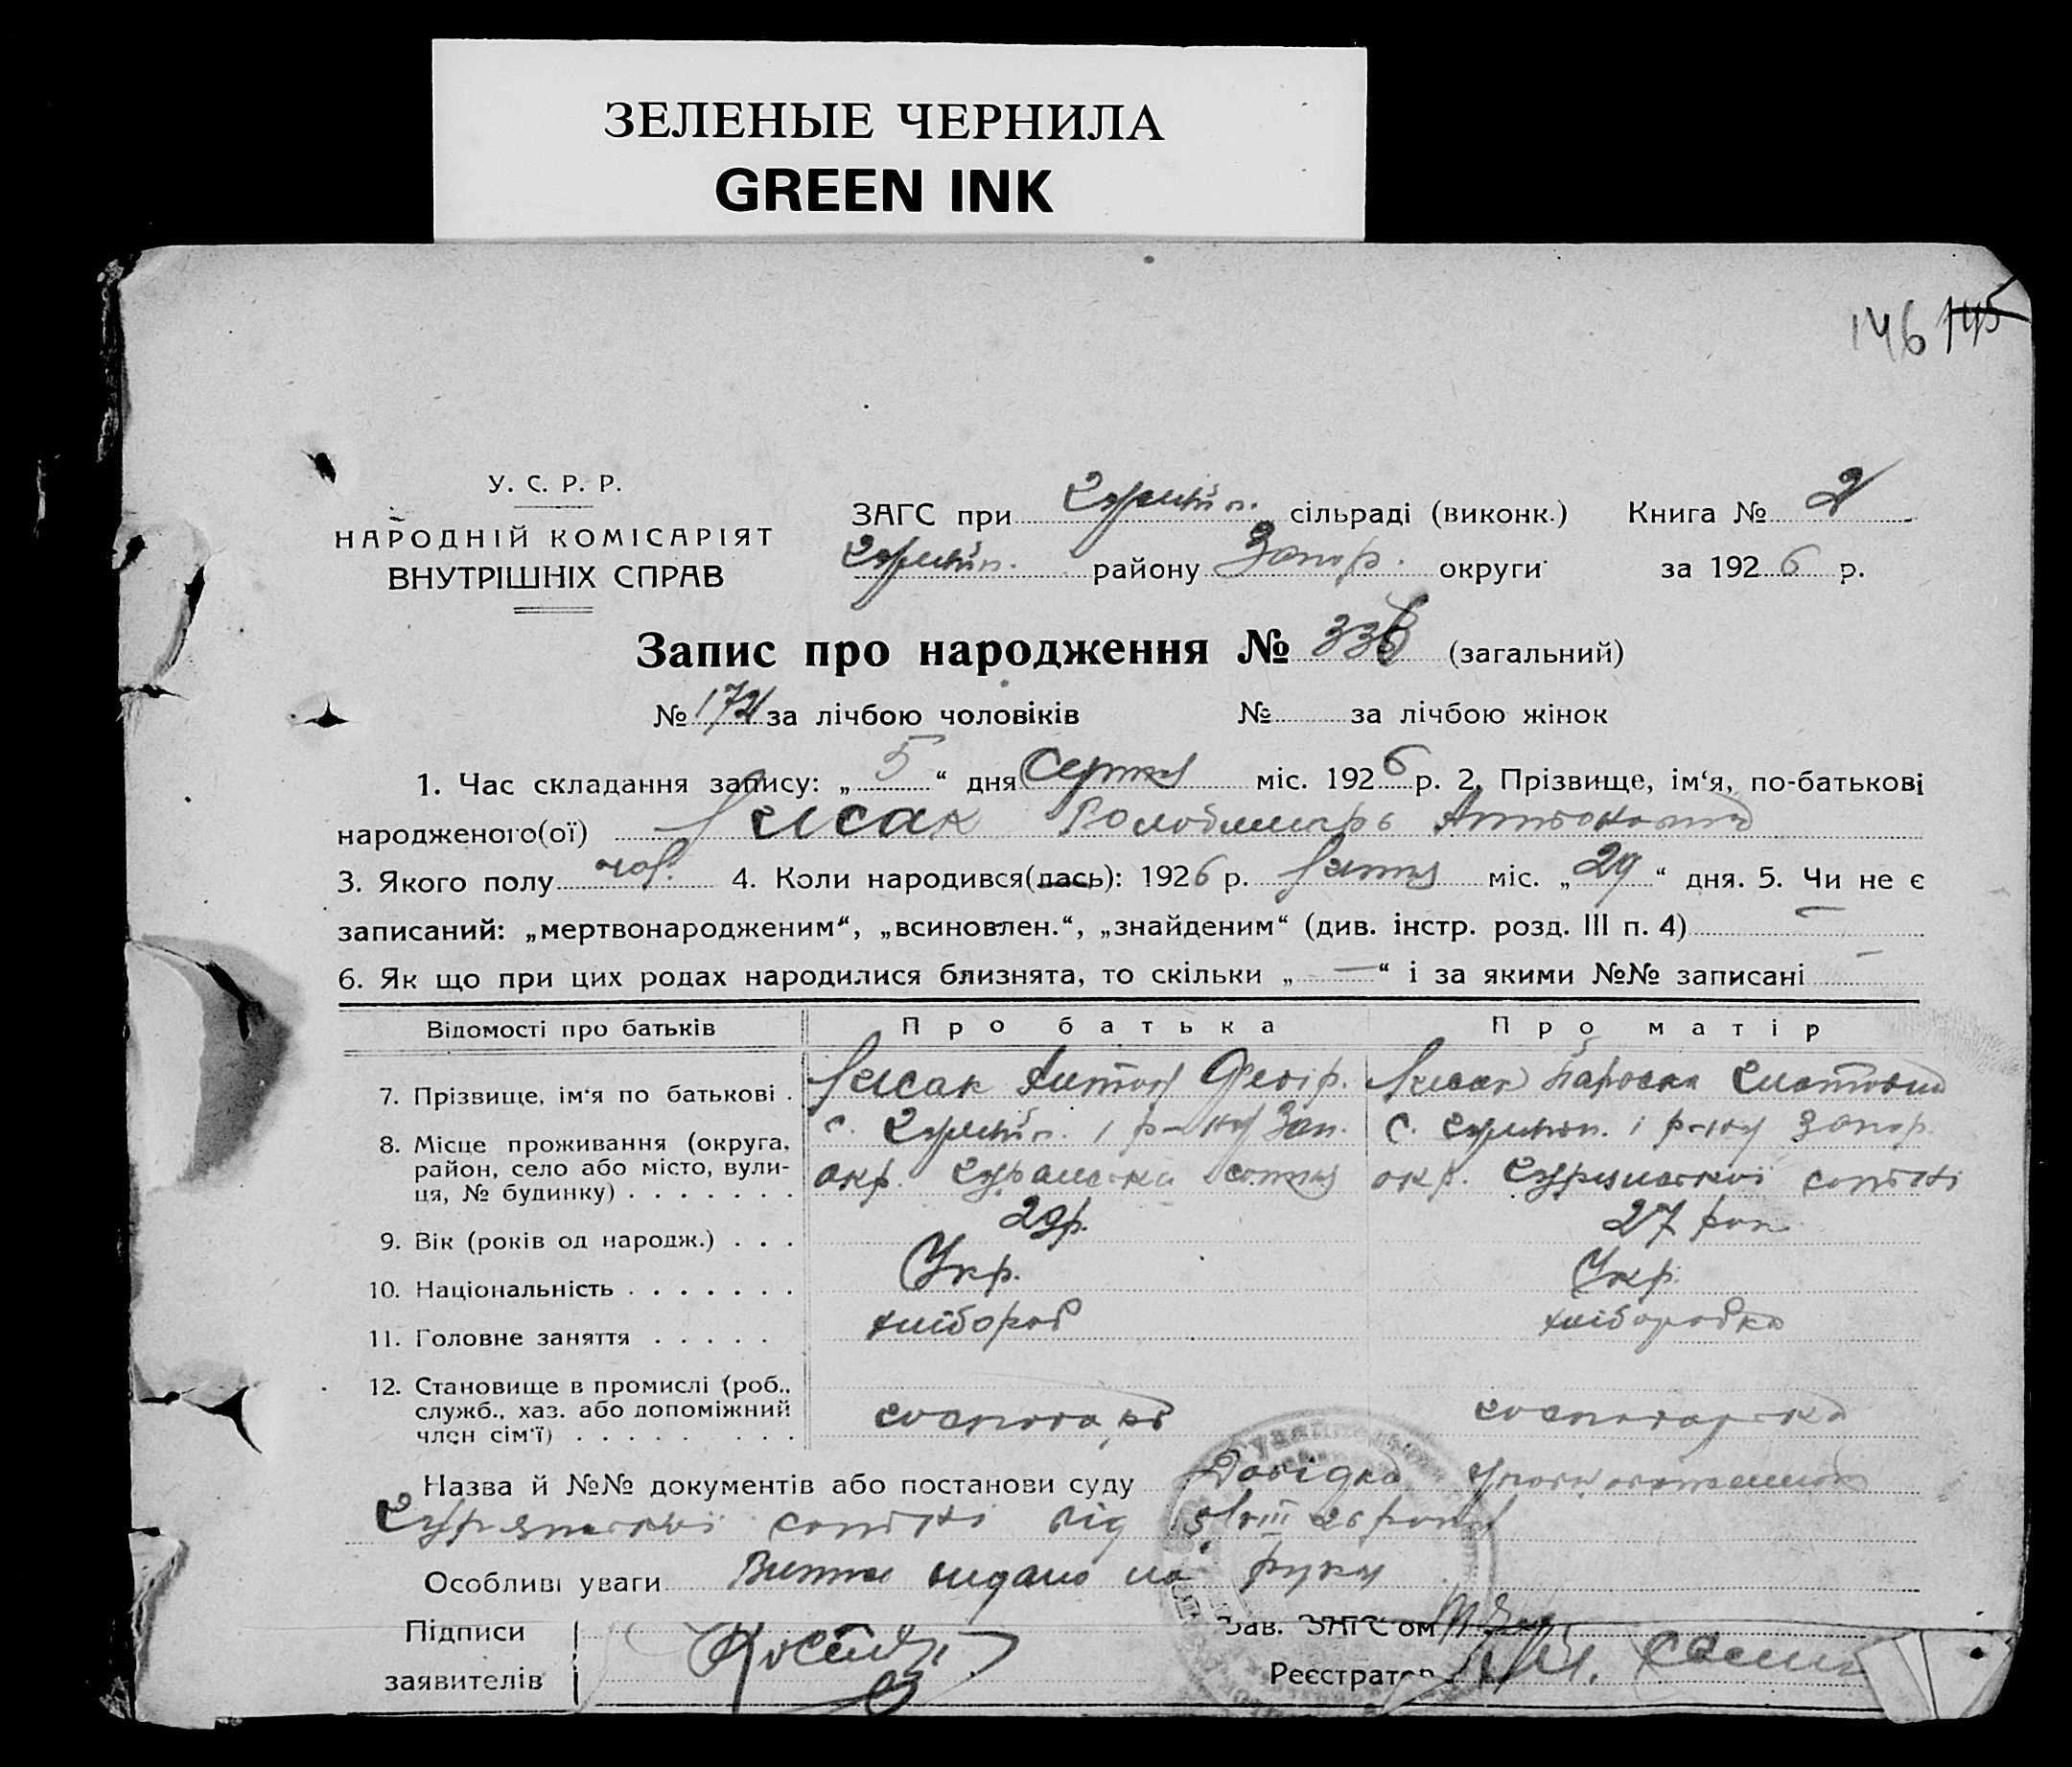 ЗЕЛЕНЫЕ ЧЕРНИЛА
GREEN INK
146 145
У. С. Р. Р.
НАРОДНІЙ КОМІСАРІЯТ
ВНУТРІШНІХ СПРАВ
ЗАГС при сільраді (виконк.) Книга № 2
району Запор. округи за 1926 р.
Запис про народження № 336 (загальний)
№ 172 за лічбою чоловіків № за лічбою жінок
1. Час складання запису: „ 5 “ дня Серпня міс. 1926 р. 2. Прізвище, ім‘я, по-батькові
народженого(ої) Лисак Володимиръ Антонович
3. Якого полу чол. 4. Коли народився(лась): 1926 р. Липня міс. „ 29 “ дня. 5. Чи не є
записаний: „мертвонародженим“, „всиновлен.“, „знайденим“ (див. інстр. розд. III п. 4) —
6. Як що при цих родах народилися близнята, то скільки „ — “ і за якими №№ записані —
Відомості про батьків Про батька Про матір
7. Прізвище, ім‘я по батькові . Лисак Антон Лисак
8. Місце проживання (округа, с. р-ну Зап. с. р-ну Запор.
район, село або місто, вули- окр. окр.
ця, № будинку) . . . . . . .
9. Вік (років од народж.) . . . 29 р. 27 рок
10. Національність . . . . . . . Укр. Укр.
11. Головне заняття . . . . . хлібороб хліборобка
12. Становище в промислі (роб.,
служб., хаз. або допоміжний господарь господарка
член сім‘ї) . . . . . . . .
Назва й №№ документів або постанови суду Довідка
від 5/VIII 26 року
Особливі уваги Випис видано на руки
Підписи Зав. ЗАГС‘ом
заявителів Реєстратор